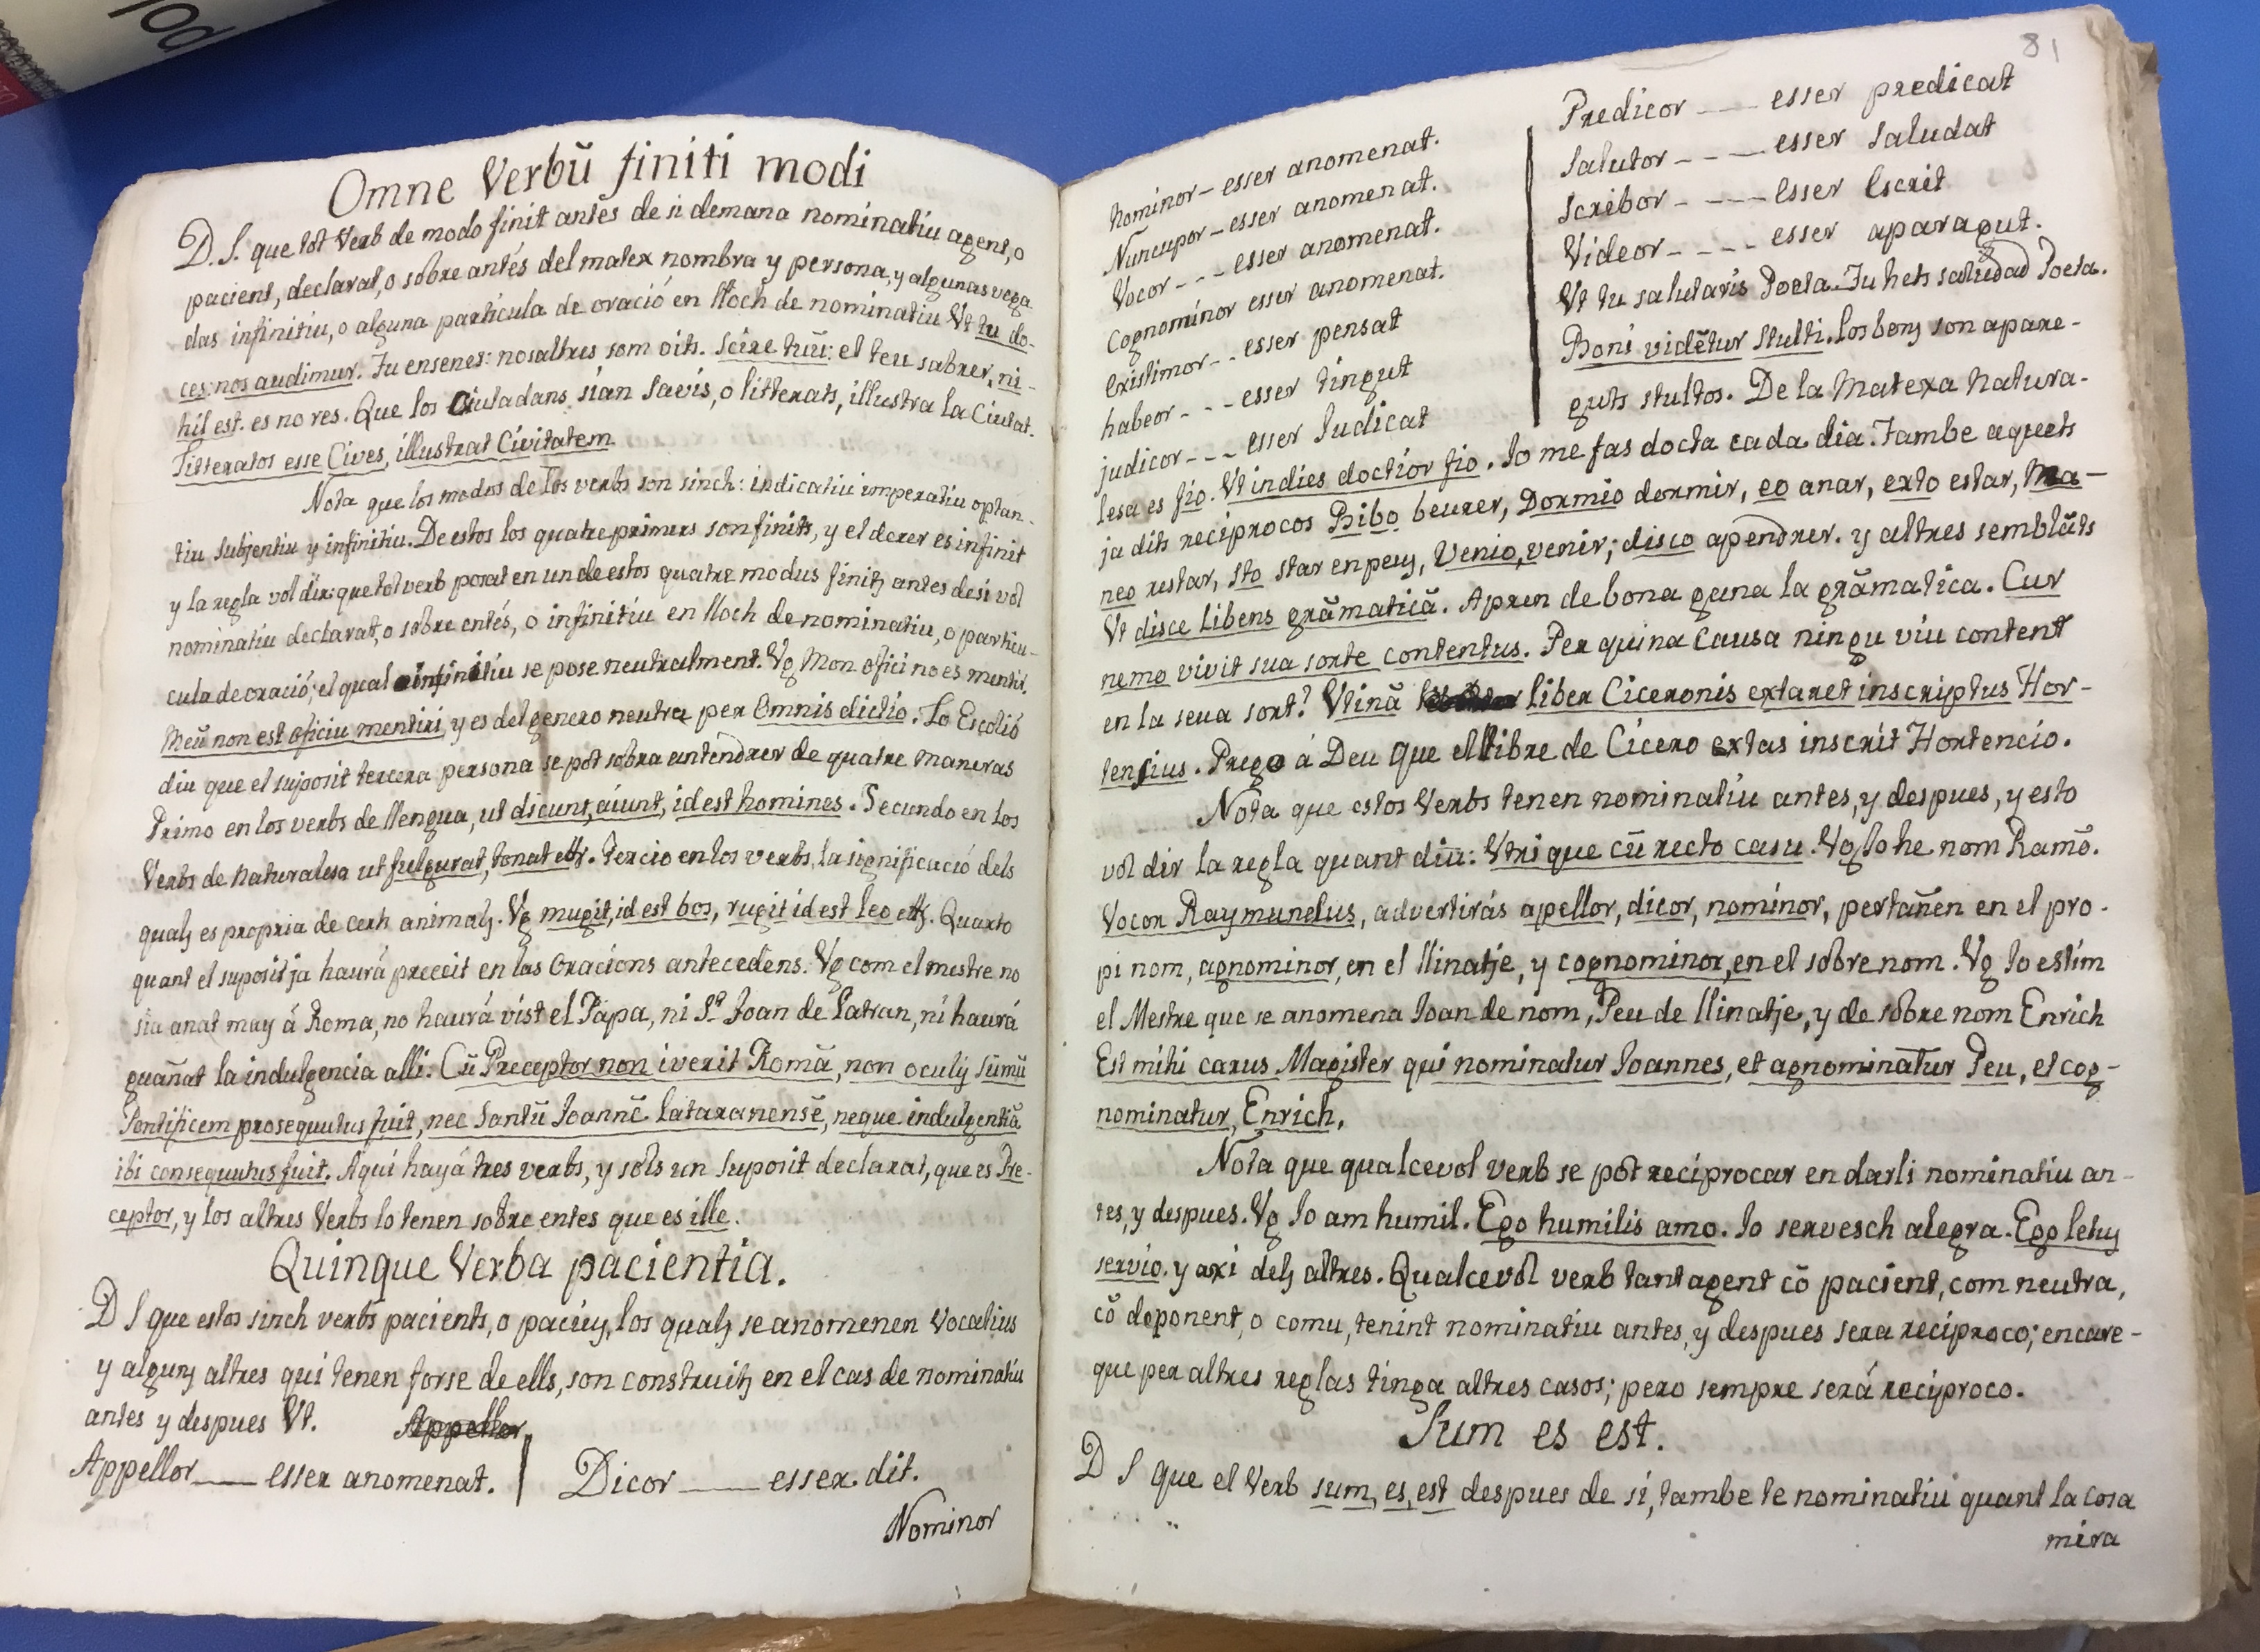 Omne Verbũ finiti modi
D. S. que tot Verb de modo finit antes de si demana nominatiu agent, o
pacient, declarat, o sobre antés del matex nombra y persona, y algunas vega
das infinitiu, o alguna particula de oració en lloch de nominatiu Vt tu do-
ces: nos audimur. Tu ensenes: nosaltres som oits. Scire tuũ: el teu sabrer, ni-
hil est. es no res. Que los Ciutadans sian savis, o litterats, illustra la Ciutat.
Litteratos esse Cives, illustrat Civitatem
Nota que los modos de los verbs son sinch: indicatiu imperatiu optan-
tiu subjentiu y infinitiu. De estos los quatre primers son finits, y el derer es infinit
y la regla vol dir: que tot verb posat en un de estos quatre modus finits antes de si vol
nominatiu declarat, o sobre entés, o infinitiu en lloch de nominatiu, o particu-
cula de oració; el qual infinitiu se pose neutralment. Vg Mon ofici no es mentir.
Meũ non est oficiu mentiri, y es del genero neutra per Omnis dictio. Lo Escolió
diu que el suposit tercera persona se pot sobra entendrer de quatre maneras
Primo en los verbs de llengua, ut dicunt, aiunt, id est homines. Secundo en los
Verbs de naturalesa ut fulgurat, tonat ettz. Tercio en los verbs, la significació dels
quals es propria de certs animals. Vg mugit, id est bos, rugit id est leo ettz. Quarto
quant el suposit ja haurá preceit en las oracions antecedens. Vg com el mestre no
sia anat may á Roma, no haurá vist el Papa, ni St Joan de Latran, ni haurá
guañat la indulgencia alli. Cũ Preceptor non iverit Romã, non oculis sũmũ
Pontificem prosequutus fuit, nec Santũ Joannẽ Lataranensẽ, neque indulgentiã
ibi consequutus fuit. Aqui hayá tres verbs, y sols un suposit declarat, que es Pre-
ceptor, y los altres Verbs lo tenen sobre entes que es ille.
Quinque Verba pacientia.
D S que estos sinch verbs pacients, o pacius, los quals se anomenen Vocatius
y alguns altres qui tenen forse de ells, son construits en el cas de nominatiu
antes y despues Vt. Appellor
Appellor ___ esser anomenat.
Dicor ___ esser dit.
Nominor
81
nominor - esser anomenat.
Nuncupor - esser anomenat.
Vocor - - - esser anomenat.
Cognominor esser anomenat.
Existimor - - esser pensat
habeor - - - esser tingut
judicor - - - esser Judicat
Predicor ___ esser predicat
Salutor - - - esser saludat
Scribor - - - esser Escrit
Videor - - - - esser aparagut.
Vt tu salutaris Poeta. Tu hets saludad Poeta.
Boni vidẽtur stulti. Los bons son apare-
guts stultos. De la Matexa Natura-
lesa es fio. Vt indies doctior fio. Jo me fas docta cada dia. Tambe aquets
ja dits reciprocos Bibo beurer, Dormio dormir, eo anar, exto estar, Ma-
neo restar, sto star en peus, Venio, venir; disco apendrer. y altres semblãts
Vt disce libens grãmaticã. Apren de bona gana la grãmatica. Cur
nemo vivit sua sorte contentus. Per quina causa ningu viu content
en la seua sort? Vtinã liber Ciceronis extaret inscriptus Hor-
tensius. Prego á Deu que el llibre de Cicero extas inscrit Hortencio.
Nota que estos Verbs tenen nominatiu antes, y despues, y esto
vol dir la regla quant diu: Vtrique cũ recto casu. Vg Jo he nom Ramõ.
Vocor Raymundus, advertirás apellor, dicor, nominor, pertañen en el pro-
pi nom, agnominor, en el llinatje, y cognominor, en el sobre nom. Vg Jo estim
el Mestre que se anomena Joan de nom, Peu de llinatje, y de sobre nom Enrich
Est mihi carus Magister qui nominatur Joannes, et agnominatur Peu, et cog-
nominatur, Enrich.
Nota que qualcevol verb se pot reciprocar en darli nominatiu an-
tes, y despues. Vg Jo am humil. Ego humilis amo. Jo servesch alegra. Ego letus
servio. y axi dels altres. Qualcevol verb tant agent cõ pacient, com neutra,
cõ deponent, o comu, tenint nominatiu antes, y despues sera reciproco; encare-
que per altres reglas tinga altres casos; pero sempre será reciproco.
Sum es est.
D S que el Verb sum, es, est despues de si, tambe te nominatiu quant la cosa
mira